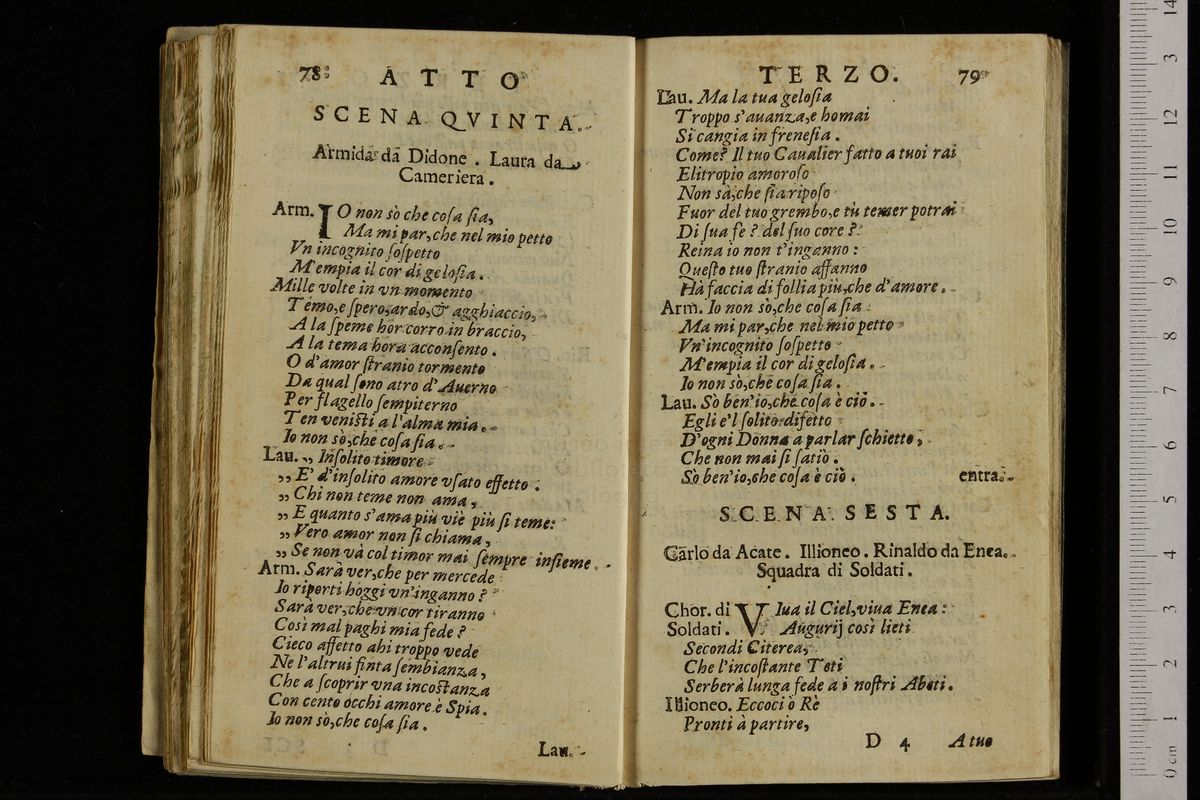 78
ATTO
SCENA QVINTA.
Armida da Didone. Laura da
Cameriera.
Arm. IO non sò che coſa ſia,
Ma mi par,che nel mio petto
Vn incognito ſoſpetto
M'empia il cor di geloſia.
Mille volte in vn momento
Temo,e ſpero,ardo,& agghiaccio,
A la ſpeme hor corro in braccio,
A la tema hora acconſento.
O d'amor ſtranio tormento
Da qual ſeno atro d'Auerno
Per flagello ſempiterno
Ten veniſti a l'alma mia.
Io non sò,che coſa ſia.
Lau. „ Inſolito timore
„ E' d'inſolito amore vſato effetto.
„ Chi non teme non ama,
„ E quanto s'ama più viè più ſi teme:
„ Vero amor non ſi chiama,
„ Se non và col timor mai ſempre inſieme.
Arm. Sarà ver,che per mercede
Io riporti hoggi vn'inganno?
Sarà ver,che vn cor tiranno
Così mal paghi mia fede?
Cieco affetto ahi troppo vede
Ne l'altrui finta ſembianza,
Che a ſcoprir vna incoſtanza
Con cento occhi amore è Spia.
Io non sò,che coſa ſia.
Lau.
TERZO. 79
Lau. Ma la tua geloſia
Troppo s'auanza,e homai
Si cangia in freneſia.
Come? Il tuo Caualier fatto a tuoi rai
Elitropio amoroſo
Non sà,che ſia ripoſo
Fuor del tuo grembo,e tù temer potrai
Di ſua fè? del ſuo core?
Reina io non t'inganno:
Queſto tuo ſtranio affanno
Hà faccia di follia più,che d'amore.
Arm. Io non sò,che coſa ſia
Ma mi par,che nel mio petto
Vn'incognito ſoſpetto
M'empia il cor di geloſia.
Io non sò,che coſa ſia.
Lau. Sò ben'io,che coſa è ciò.
Egli e'l ſolito difetto
D'ogni Donna a parlar ſchietto,
Che non mai ſi ſatiò.
Sò ben'io,che coſa è ciò. entra.
SCENA SESTA.
Carlo da Acate. Illioneo. Rinaldo da Enea.
Squadra di Soldati.
Chor. di VIua il Ciel,viua Enea:
Soldati. Augurij così lieti
Secondi Citerea,
Che l'incoſtante Teti
Serberà lunga fede a i noſtri Abeti.
Illioneo. Eccoci ò Rè
Pronti à partire,
D 4 A tuo